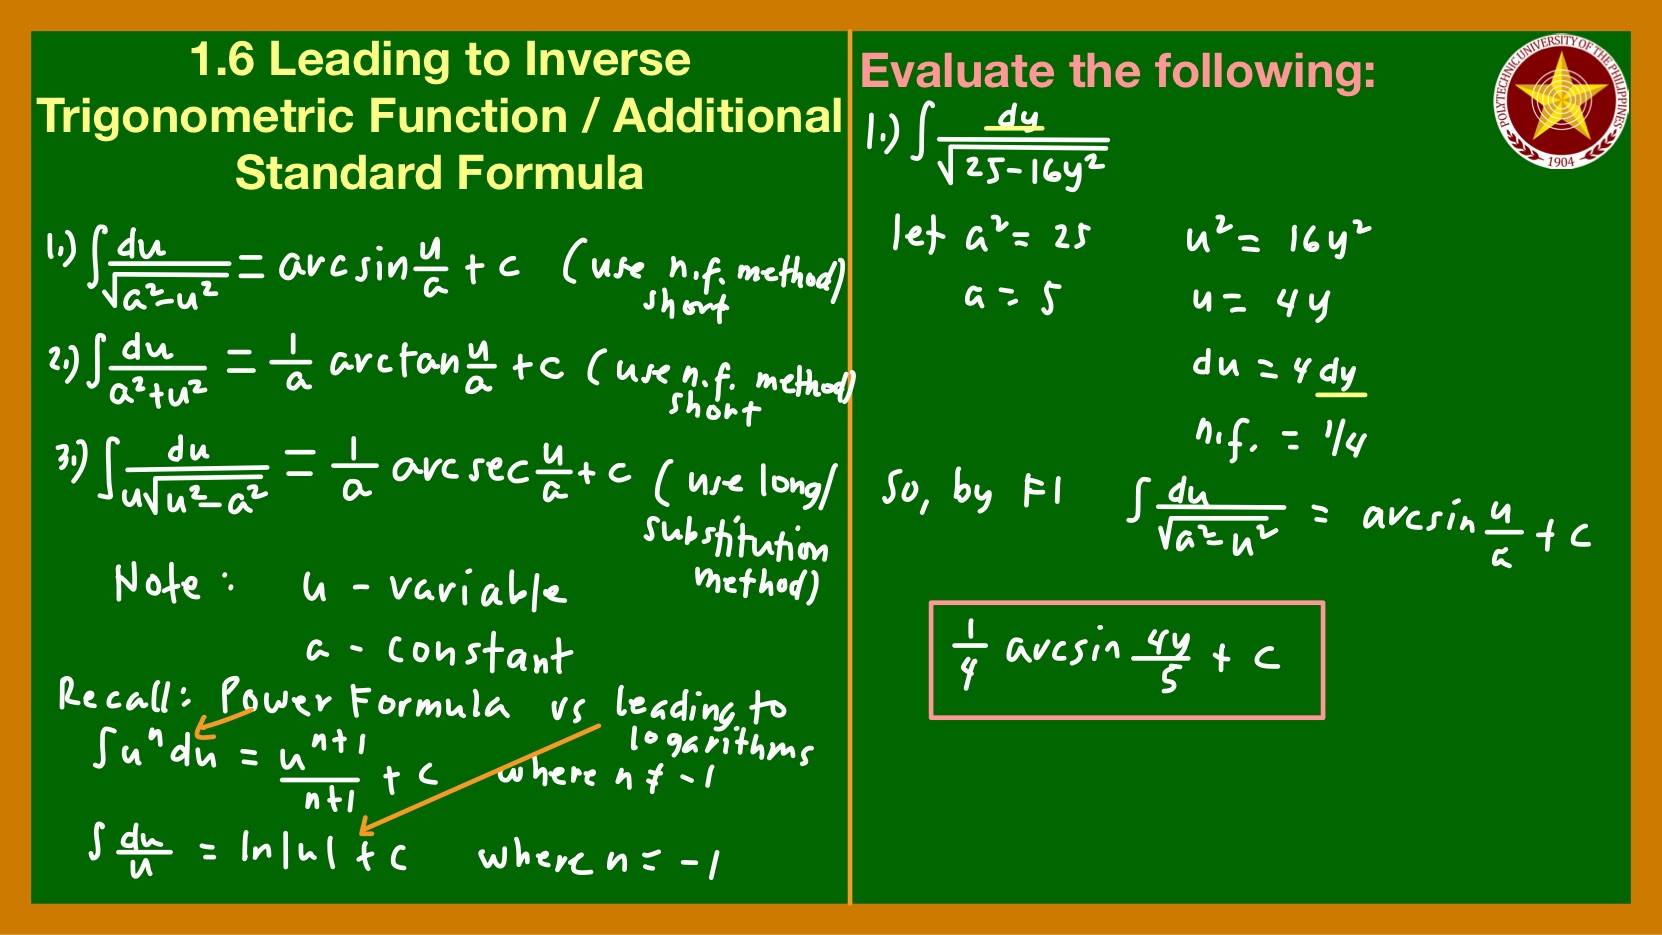 1.6 Leading to Inverse
Trigonometric Function / Additional
Standard Formula
1.) ∫ du/√(a²-u²) = arcsin u/a + c (use n.f. method) short
2.) ∫ du/(a²+u²) = 1/a arctan u/a + c (use n.f. method) short
3.) ∫ du/(u√(u²-a²)) = 1/a arcsec u/a + c (use long/
substitution
method)
Note: u - variable
a - constant
Recall: Power Formula vs leading to
logarithms
∫uⁿ du = uⁿ⁺¹/(n+1) + c where n ≠ -1
∫ du/u = ln|u| + c where n = -1
Evaluate the following:
1.) ∫ dy/√(25-16y²)
let a² = 25 u² = 16y²
a = 5 u = 4y
du = 4dy
n.f. = 1/4
So, by F1 ∫ du/√(a²-u²) = arcsin u/a + c
1/4 arcsin 4y/5 + c
POLYTECHNIC UNIVERSITY OF THE PHILIPPINES
1904